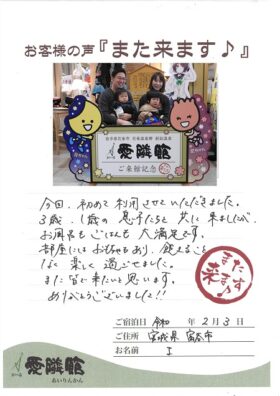 お客様の声『また来ます♪』
岩手県花巻市 花巻温泉郷 新鉛温泉
愛隣館
ご来館記念
今回、初めて利用させていただきました。
3歳、1歳の息子たちと共に来ましたが、
お風呂もごはんも大満足です。
部屋にはおもちゃもあり、飽えること
なく楽しく過ごせました。
また皆で来たいと思います。
ありがとうございました!!
また来ます♪
ご宿泊日 令和 年 2月 3日
ご住所 宮城県 富谷市
お名前 I
愛隣館
あいりんかん